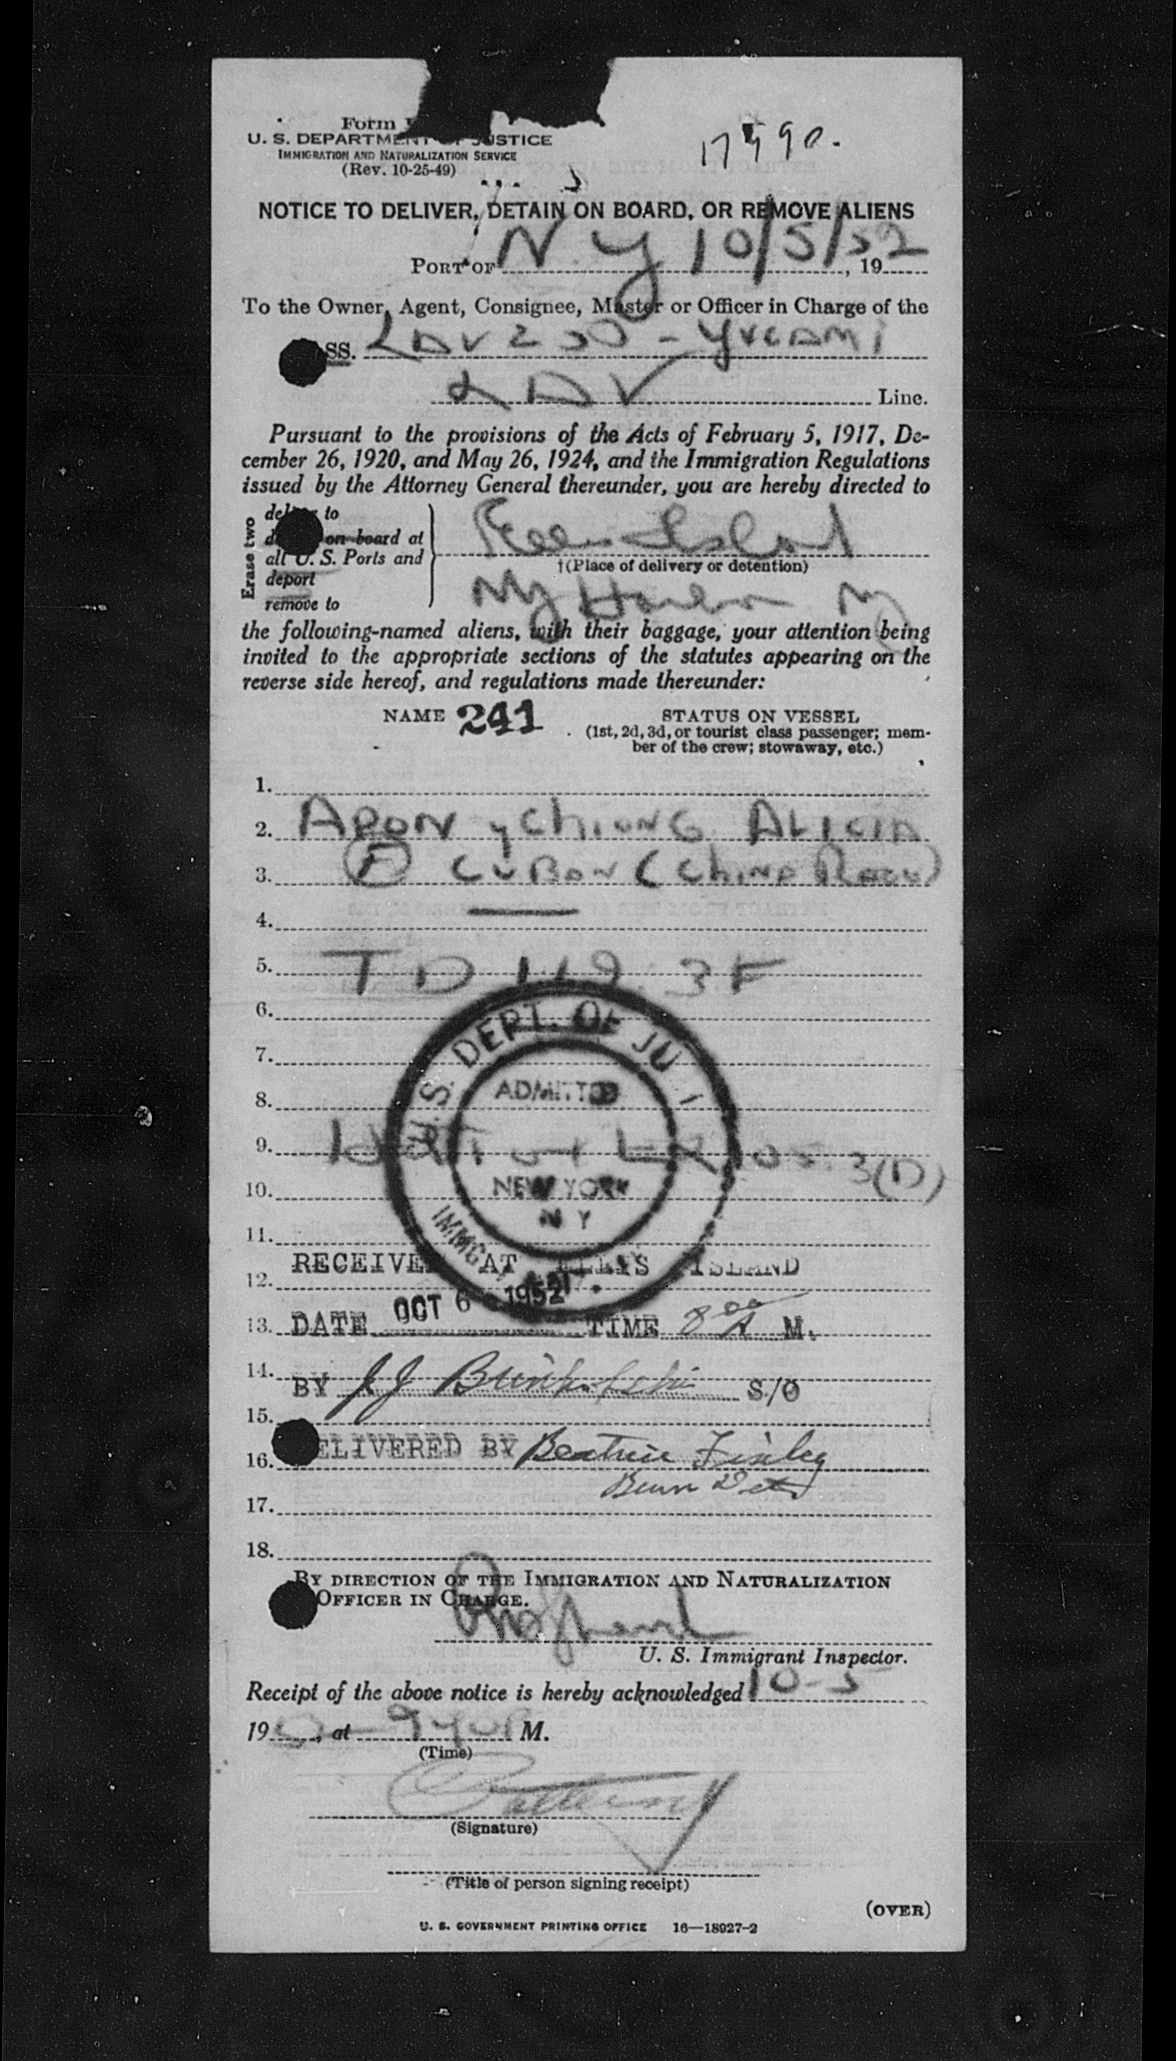 Form
U. S. DEPARTMENT OF JUSTICE
IMMIGRATION AND NATURALIZATION SERVICE
(Rev. 10-25-49)
17990.
NOTICE TO DELIVER, DETAIN ON BOARD, OR REMOVE ALIENS
PORT OF N Y 10/5/52, 19
To the Owner, Agent, Consignee, Master or Officer in Charge of the
SS. LAV 250 -
LAV Line.
Pursuant to the provisions of the Acts of February 5, 1917, De-
cember 26, 1920, and May 26, 1924, and the Immigration Regulations
issued by the Attorney General thereunder, you are hereby directed to
Erase two
deliver to
on board at
all U. S. Ports and
deport
remove to
Ellis Island
†(Place of delivery or detention)
NY Harbor NY
the following-named aliens, with their baggage, your attention being
invited to the appropriate sections of the statutes appearing on the
reverse side hereof, and regulations made thereunder:
NAME 241
STATUS ON VESSEL
(1st, 2d, 3d, or tourist class passenger; mem-
ber of the crew; stowaway, etc.)
1.
2. APON y CHIONG ALICIA
3. F CUBAN (China Race)
4.
5. TD 119. 3F
6.
7.
8.
9. 3(D)
10.
11.
12.
13.
14.
15.
16.
17.
18.
U. S. DEPT. OF JU I
ADMITTED
NEW YORK
N Y
IMMG
RECEIVED AT ELLIS ISLAND
DATE OCT 6 1952 TIME 8 00 A M.
BY J J S/O
DELIVERED BY Beatrice Finley
BY DIRECTION OF THE IMMIGRATION AND NATURALIZATION
OFFICER IN CHARGE.
U. S. Immigrant Inspector.
Receipt of the above notice is hereby acknowledged 10-5
19, at M.
(Time)
(Signature)
(Title of person signing receipt)
(OVER)
U. S. GOVERNMENT PRINTING OFFICE 16—18927-2